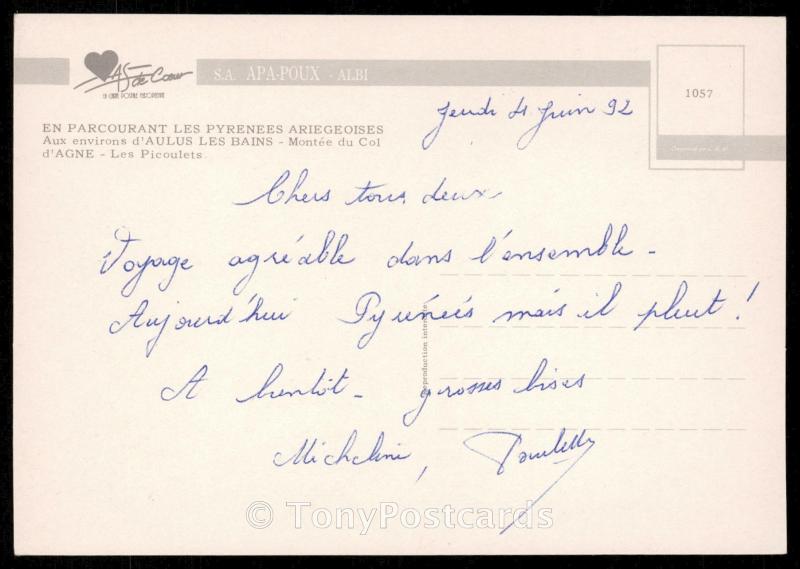 AS de Cœur
LA CARTE POSTALE EUROPEENNE
S.A. APA-POUX - ALBI
1057
EN PARCOURANT LES PYRENEES ARIEGEOISES
Aux environs d'AULUS LES BAINS - Montée du Col
d'AGNE - Les Picoulets
Jeudi 4 Juin 92
Chers tous deux
Voyage agréable dans l'ensemble -
Aujourd'hui Pyrénées mais il pleut !
A bientôt - grosses bises
Micheline, Paulette
Reproduction interdite
© TonyPostcards